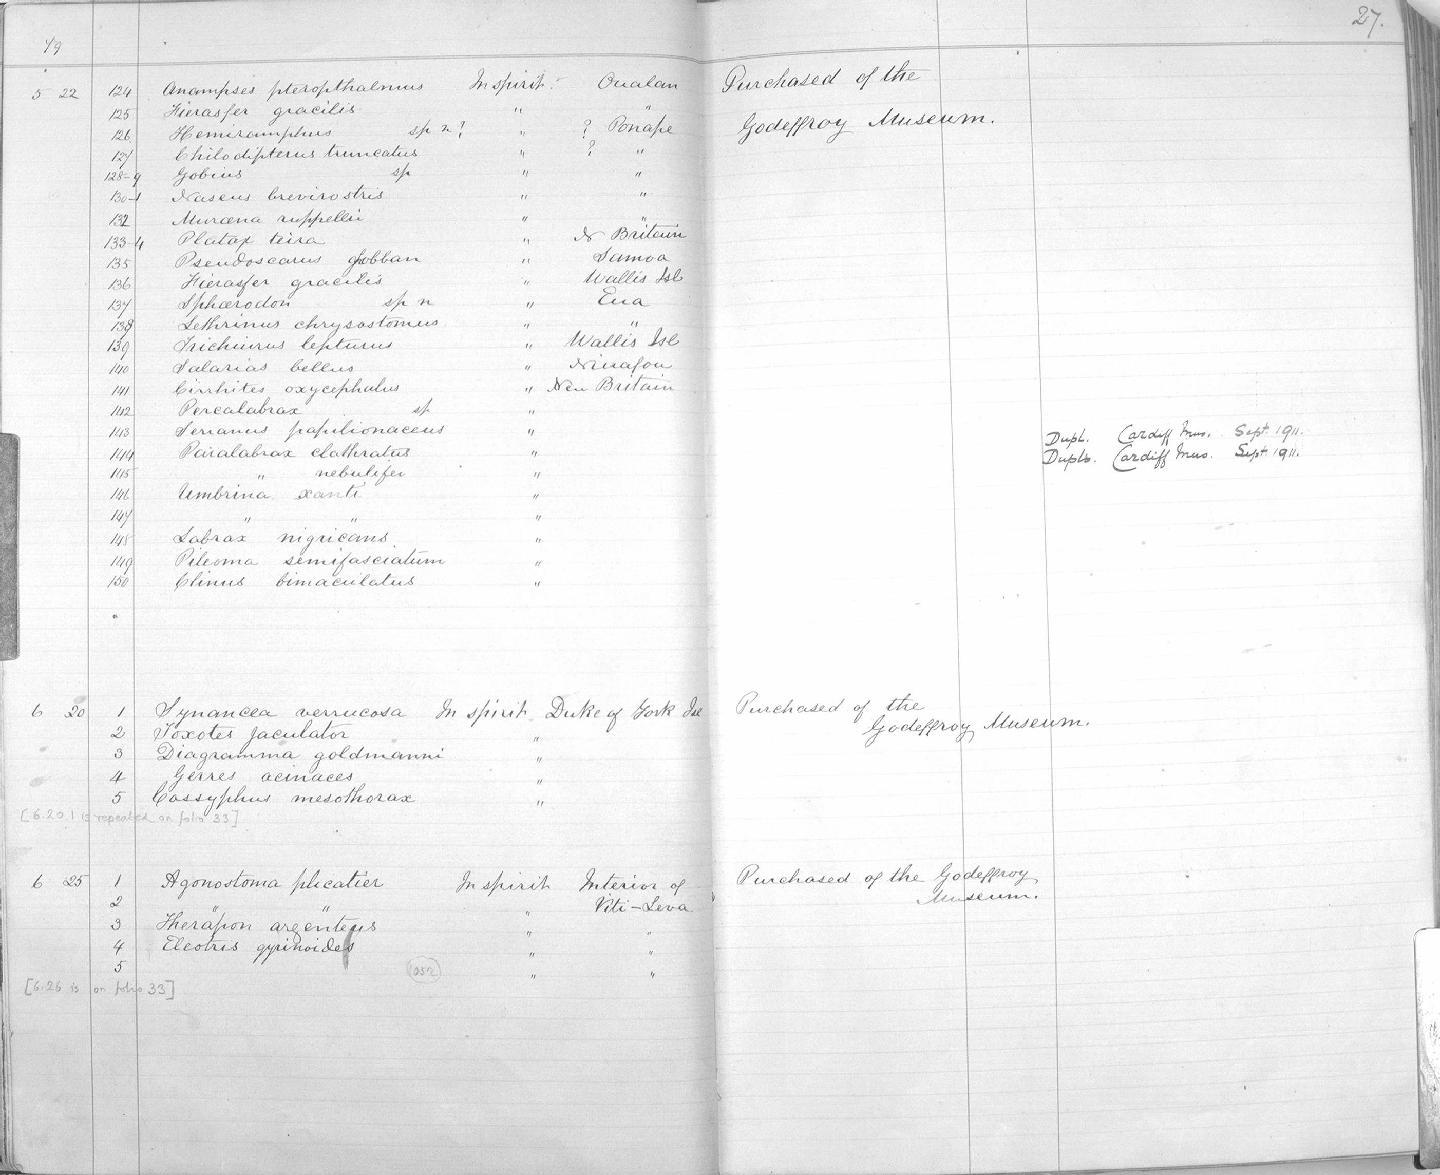 79
27.
5 22 124 Anampses pteropthalmus In spirit. Oualan Purchased of the
125 Fierasfer gracilis " "
126 Hemiramphus sp n? " ? Ponape Godeffroy Museum.
127 Chilodipterus truncatus " ? "
128-9 Gobius sp " "
130-1 Naseus brevirostris " "
132 Muræna ruppellii " "
133-4 Platax teira " N Britain
135 Pseudoscarus ghobban " Samoa
136 Fierasfer gracilis " Wallis Isl
137 Sphærodon sp n " Eua
138 Lethrinus chrysostomus " "
139 Trichiurus lepturus " Wallis Isl
140 Salarias bellus " Niuafou
141 Cirrhites oxycephalus " New Britain
142 Percalabrax sp "
143 Serranus papilionaceus " Dupl. Cardiff Mus. Sept. 1911.
144 Paralabrax clathratus " Dupls. Cardiff Mus. Sept. 1911.
145 " nebulifer "
146 Umbrina xanti "
147 " " "
148 Labrax nigricans "
149 Pileoma semifasciatum "
150 Clinus bimaculatus "
6 20 1 Synancea verrucosa In spirit Duke of York Isl Purchased of the
2 Toxotes jaculator " Godeffroy Museum.
3 Diagramma goldmanni "
4 Gerres acinaces "
5 Cossyphus mesothorax "
[6.20.1 is repeated on folio 33]
6 25 1 Agonostoma plicatier In spirit Interior of Purchased of the Godeffroy
2 " " " Viti-Leva Museum.
3 Therapon argenteus " "
4 Eleotris gyrinoides " "
5 " "
[6.26 is on folio 33]